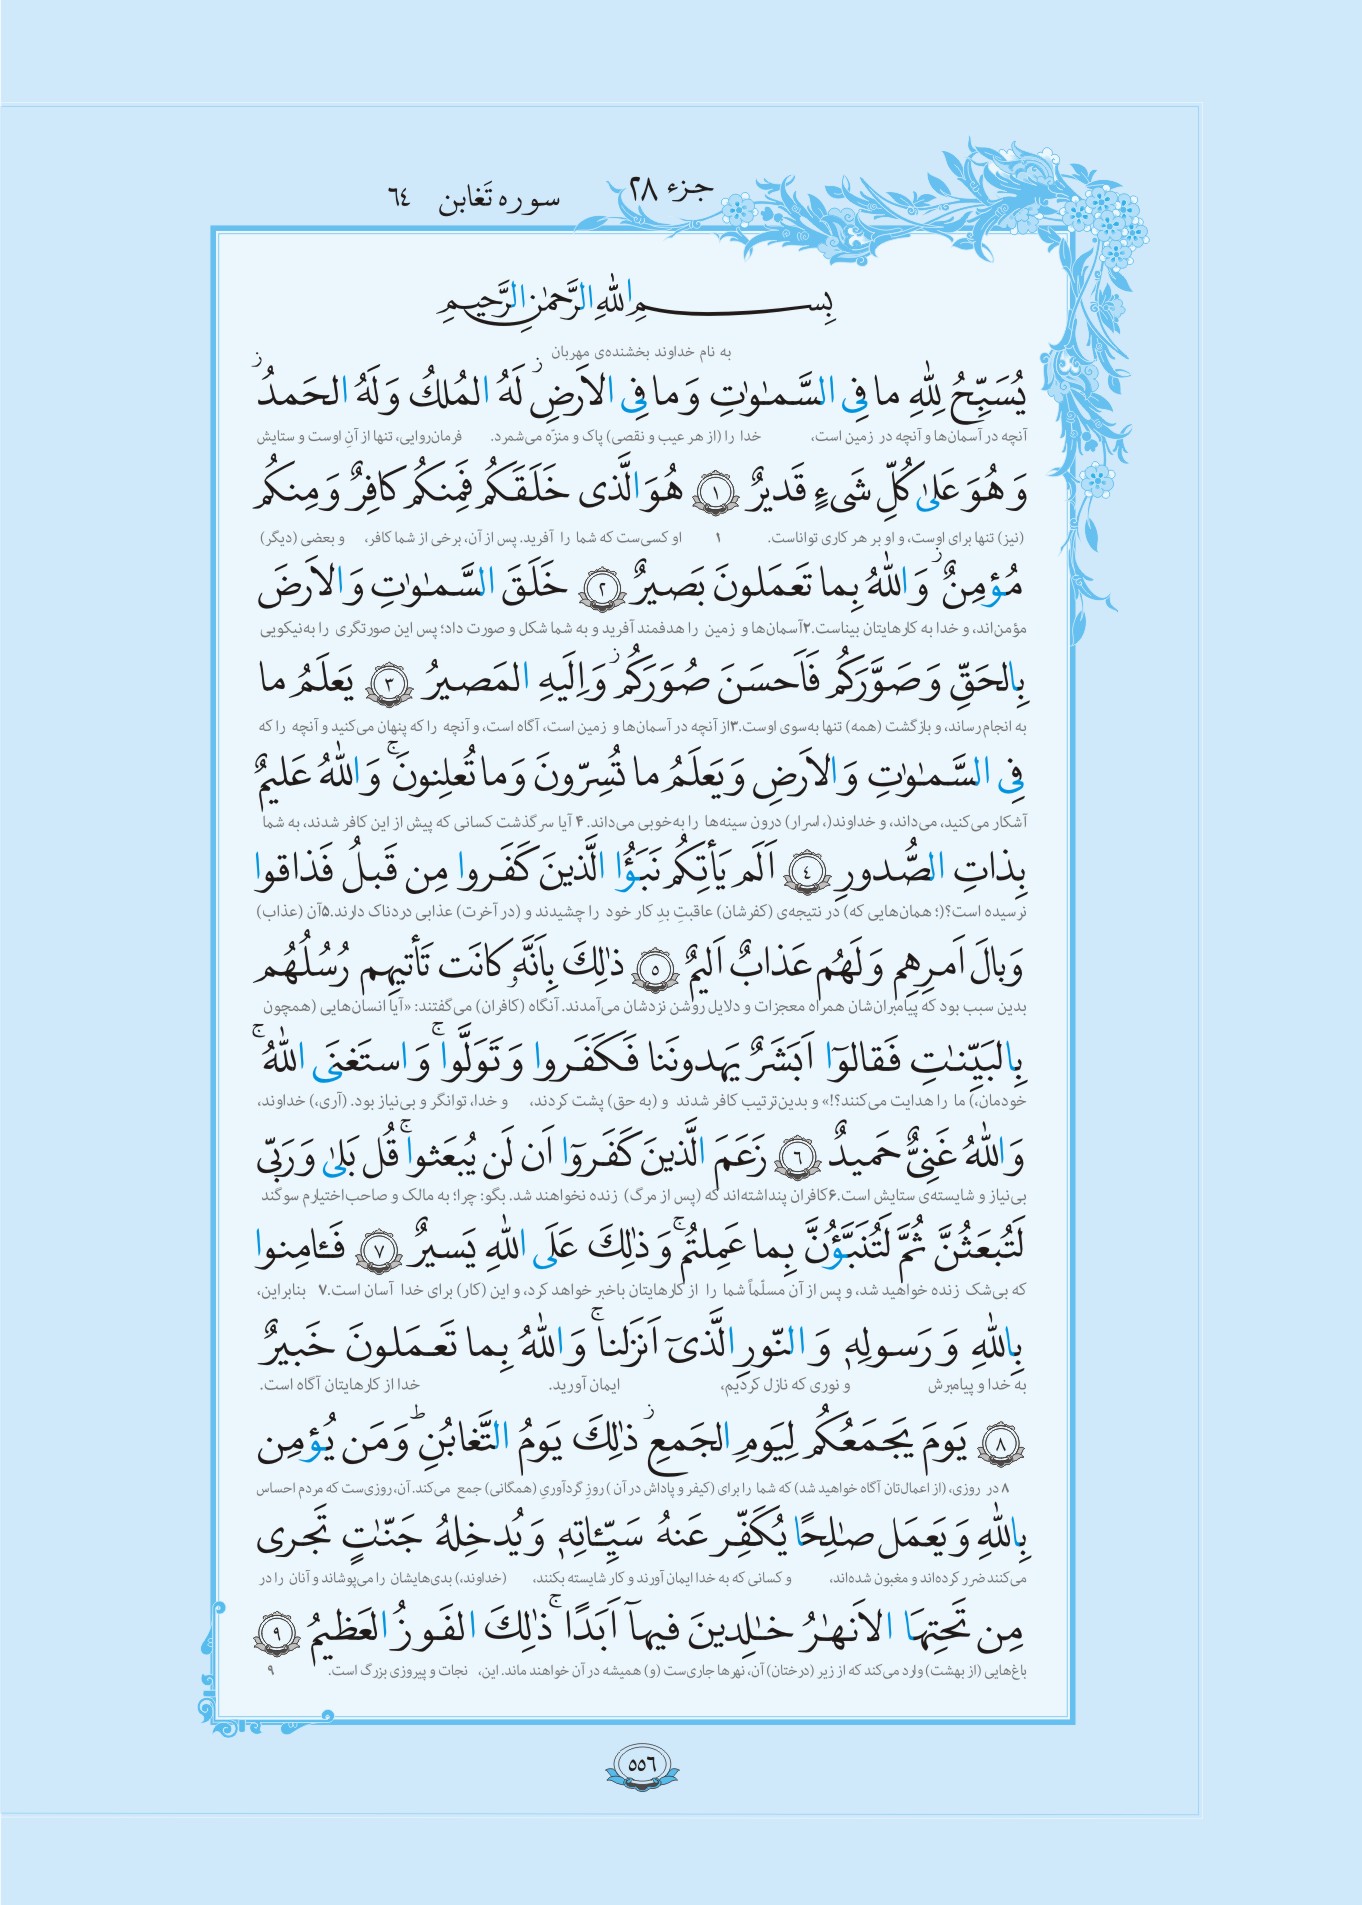 جزء ۲۸
سوره تَغابن ٦٤
بِسمِ اللّٰهِ الرَّحمٰنِ الرَّحيمِ
به نام خداوند بخشنده‌ی مهربان
يُسَبِّحُ لِلّٰهِ ما فِى السَّمٰوٰتِ وَما فِى الاَرضِ ز لَهُ المُلكُ وَلَهُ الحَمدُ ز
آنچه در آسمان‌ها و آنچه در زمین است، خدا را (از هر عیب و نقصی) پاک و منزّه می‌شمرد. فرمان‌روایی، تنها از آنِ اوست و ستایش
وَهُوَ عَلىٰ كُلِّ شَىءٍ قَديرٌ ١ هُوَ الَّذى خَلَقَكُم فَمِنكُم كافِرٌ وَمِنكُم
(نیز) تنها برای اوست، و او بر هر کاری تواناست. ۱ او کسی‌ست که شما را آفرید. پس از آن، برخی از شما کافر، و بعضی (دیگر)
مُؤمِنٌ ز وَاللّٰهُ بِما تَعمَلونَ بَصيرٌ ٢ خَلَقَ السَّمٰوٰتِ وَالاَرضَ
مؤمن‌اند، و خدا به کارهایتان بیناست.۲آسمان‌ها و زمین را هدفمند آفرید و به شما شکل و صورت داد؛ پس این صورتگری را به‌نیکویی
بِالحَقِّ وَصَوَّرَكُم فَاَحسَنَ صُوَرَكُم ز وَاِلَيهِ المَصيرُ ٣ يَعلَمُ ما
به انجام رساند، و بازگشت (همه) تنها به‌سوی اوست.۳از آنچه در آسمان‌ها و زمین است، آگاه است، و آنچه را که پنهان می‌کنید و آنچه را که
فِى السَّمٰوٰتِ وَالاَرضِ وَيَعلَمُ ما تُسِرّونَ وَما تُعلِنونَ ۚ وَاللّٰهُ عَليمٌ
آشکار می‌کنید، می‌داند، و خداوند(، اسرار) درون سینه‌ها را به‌خوبی می‌داند. ۴ آیا سرگذشت کسانی که پیش از این کافر شدند، به شما
بِذاتِ الصُّدورِ ٤ اَلَم يَأتِكُم نَبَؤُا الَّذينَ كَفَروا مِن قَبلُ فَذاقوا
نرسیده است؟(؛ همان‌هایی که) در نتیجه‌ی (کفرشان) عاقبتِ بدِ کار خود را چشیدند و (در آخرت) عذابی دردناک دارند.۵آن (عذاب)
وَبالَ اَمرِهِم وَلَهُم عَذابٌ اَليمٌ ٥ ذٰلِكَ بِاَنَّهُۥ كانَت تَأتيهِم رُسُلُهُم
بدین سبب بود که پیامبران‌شان همراه معجزات و دلایل روشن نزدشان می‌آمدند. آنگاه (کافران) می‌گفتند: «آیا انسان‌هایی (همچون
بِالبَيِّنٰتِ فَقالوٓا اَبَشَرٌ يَهدونَنا فَكَفَروا وَتَوَلَّوا ۚ وَاستَغنَى اللّٰهُ ۚ
خودمان،) ما را هدایت می‌کنند؟!» و بدین‌ترتیب کافر شدند و (به حق) پشت کردند، و خدا، توانگر و بی‌نیاز بود. (آری،) خداوند،
وَاللّٰهُ غَنِىٌّ حَميدٌ ٦ زَعَمَ الَّذينَ كَفَروٓا اَن لَن يُبعَثوا ۚ قُل بَلىٰ وَرَبّى
بی‌نیاز و شایسته‌ی ستایش است.۶کافران پنداشته‌اند که (پس از مرگ) زنده نخواهند شد. بگو: چرا؛ به مالک و صاحب‌اختیارم سوگند
لَتُبعَثُنَّ ثُمَّ لَتُنَبَّؤُنَّ بِما عَمِلتُم ۚ وَذٰلِكَ عَلَى اللّٰهِ يَسيرٌ ٧ فَـٔامِنوا
که بی‌شک زنده خواهید شد، و پس از آن مسلّماً شما را از کارهایتان باخبر خواهد کرد، و این (کار) برای خدا آسان است.۷ بنابراین،
بِاللّٰهِ وَرَسولِهٖ وَالنّورِ الَّذىٓ اَنزَلنا ۚ وَاللّٰهُ بِما تَعمَلونَ خَبيرٌ
به خدا و پیامبرش و نوری که نازل کردیم، ایمان آورید. خدا از کارهایتان آگاه است.
٨ يَومَ يَجمَعُكُم لِيَومِ الجَمعِ ز ذٰلِكَ يَومُ التَّغابُنِ ط وَمَن يُؤمِن
۸ در روزی، (از اعمال‌تان آگاه خواهید شد) که شما را برای (کیفر و پاداش در آن ) روزِ گردآوریِ (همگانی) جمع می‌کند. آن، روزی‌ست که مردم احساس
بِاللّٰهِ وَيَعمَل صٰلِحًا يُكَفِّر عَنهُ سَيِّـٔاتِهٖ وَيُدخِلهُ جَنّٰتٍ تَجرى
می‌کنند ضرر کرده‌اند و مغبون شده‌اند، و کسانی که به خدا ایمان آورند و کار شایسته بکنند، (خداوند،) بدی‌هایشان را می‌پوشاند و آنان را در
مِن تَحتِهَا الاَنهٰرُ خٰلِدينَ فيهآ اَبَدًا ۚ ذٰلِكَ الفَوزُ العَظيمُ ٩
باغ‌هایی (از بهشت) وارد می‌کند که از زیر (درختان) آن، نهرها جاری‌ست (و) همیشه در آن خواهند ماند. این، نجات و پیروزی بزرگ است. ۹
٥٥٦